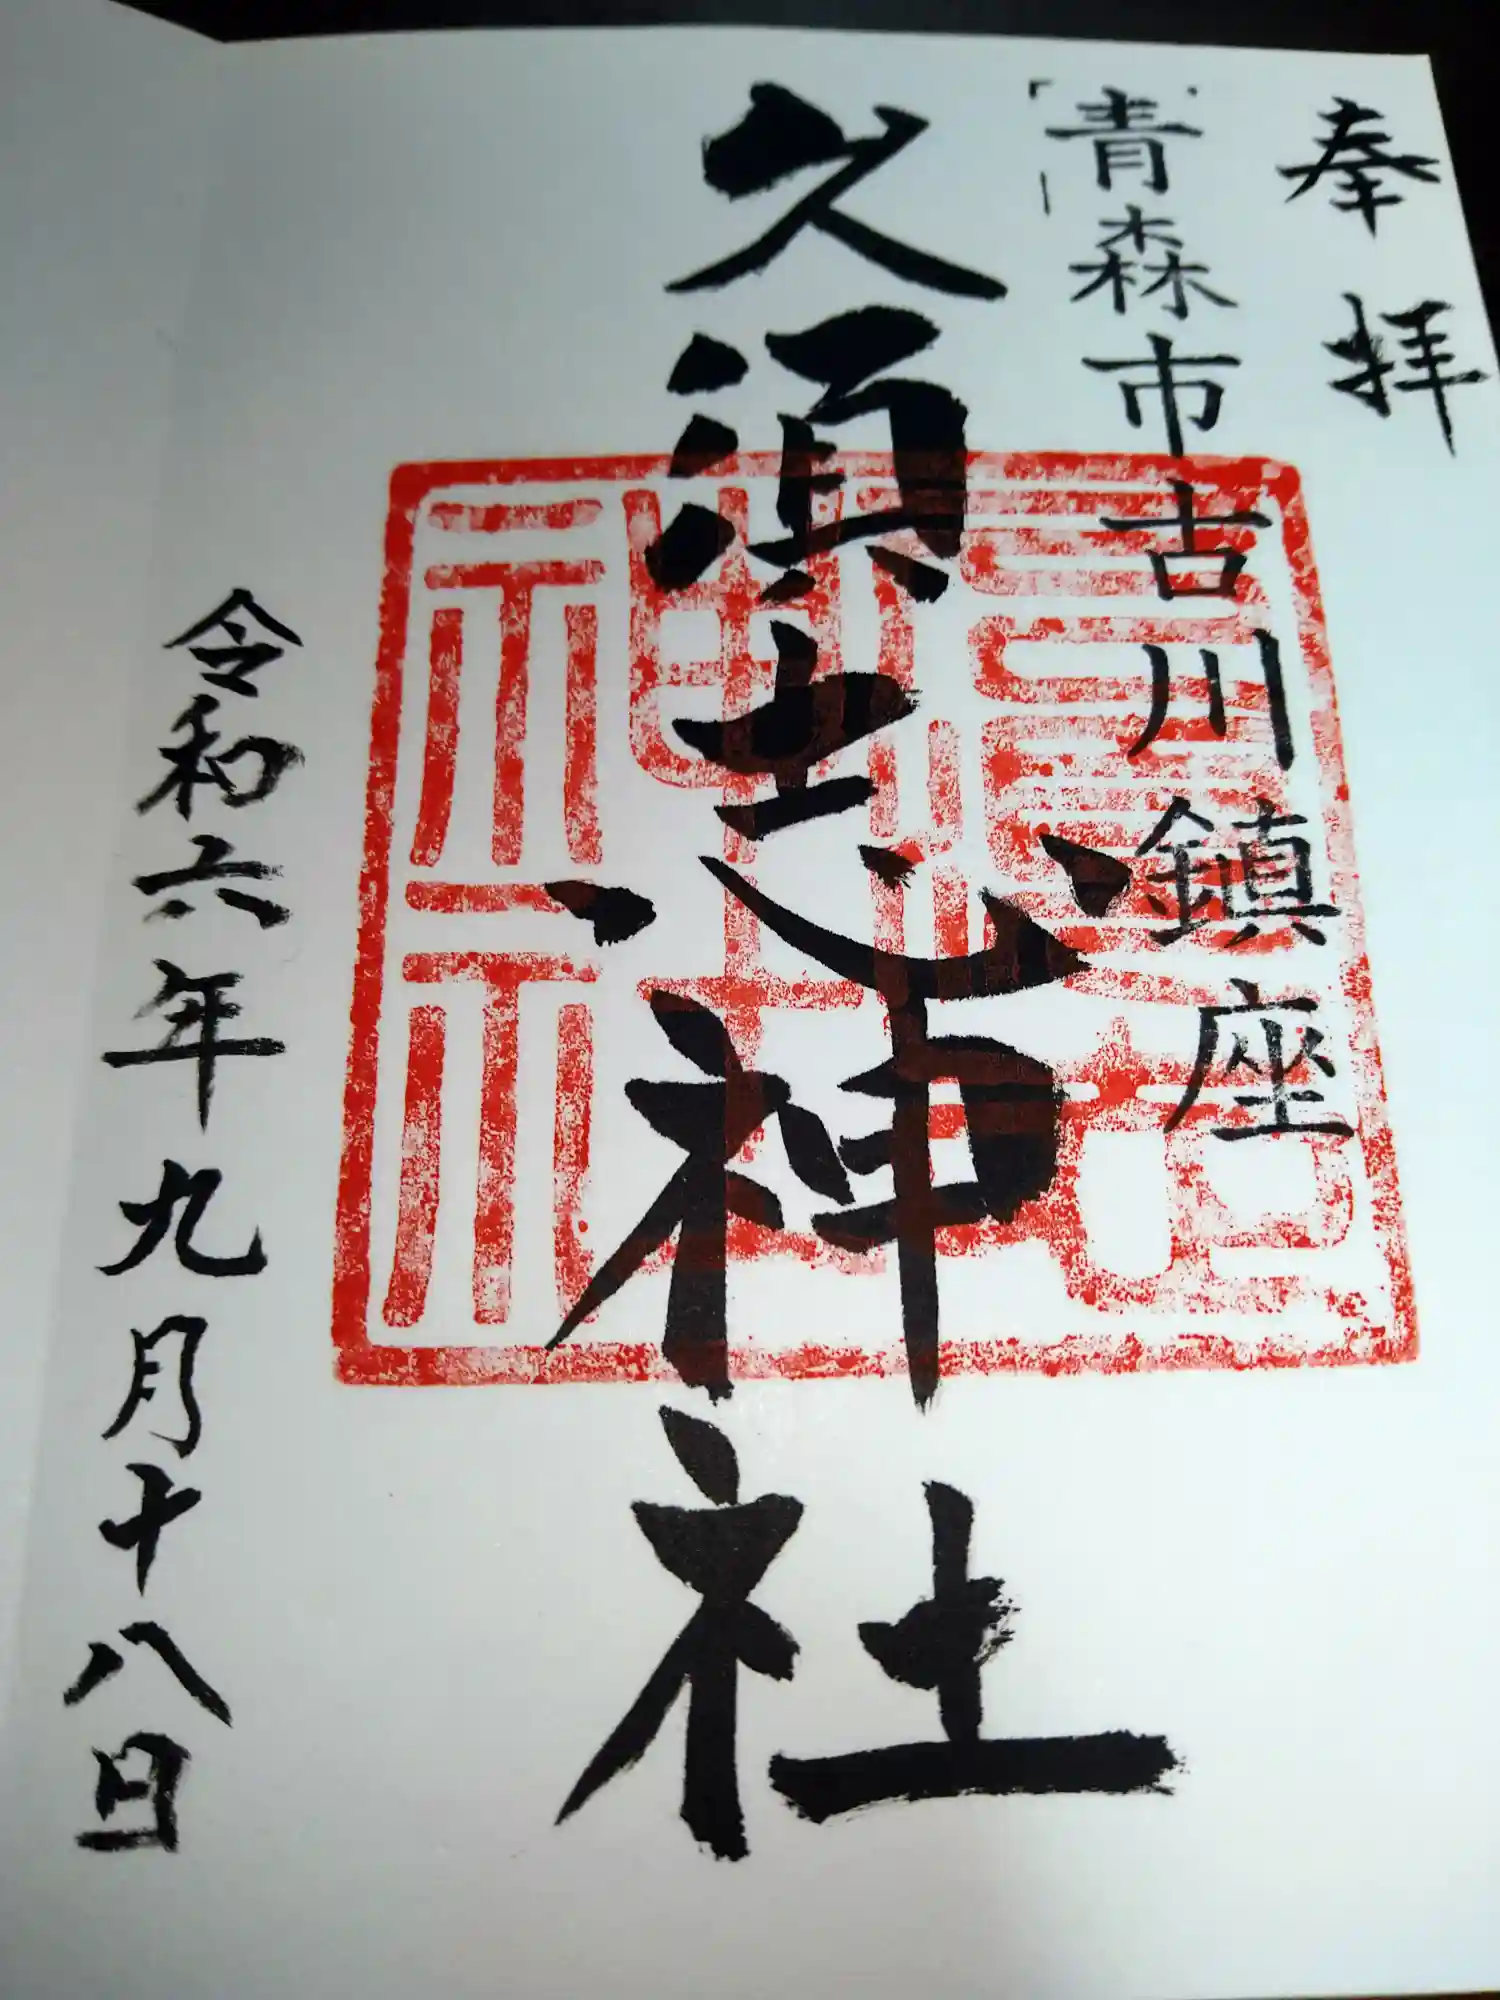 奉拝
青森市古川鎮座
久須志神社
令和六年九月十八日